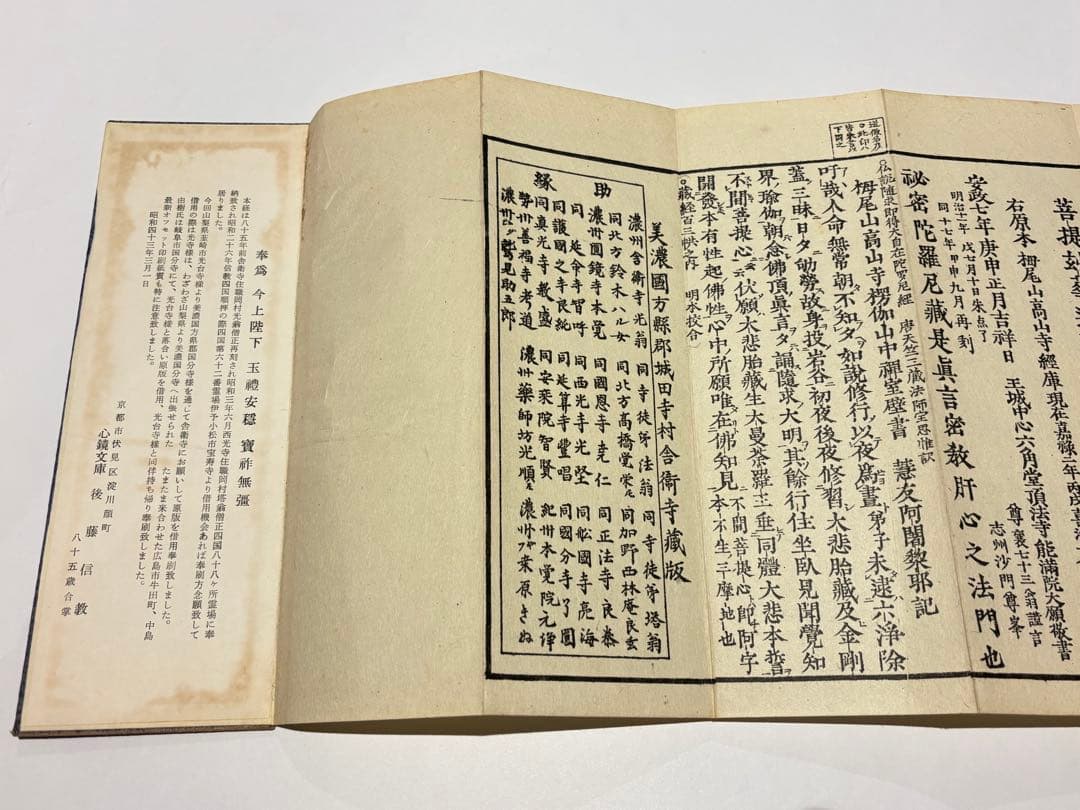 菩提
安政七年庚申正月吉祥日 王城中心六角堂頂法寺能満院大願敬書
明治十一年 戊七月十日朱点了
同十七年甲申九月再刻
右原本栂尾山高山寺經庫現在嘉禄二年丙戌
尊襄七十三翁謹言
志州沙門尊峯
秘密陀羅尼藏是眞言密教肝心之法門也
仏説随求即得大自在陀羅尼經 唐天竺三藏法師宝思惟訳
栂尾山高山寺楞伽山中禪堂壁書 慧友阿闍黎耶記
吁哉人命無常朝不知夕如說修行以夜爲晝 弟子未逮六淨除
蓋三昧日夕劬勞故身投岩谷初夜後夜修習大悲胎藏及金剛
界瑜伽朝念佛頂眞言夕誦隨求大明其餘行住坐臥見聞覺知
不聞菩提心伏願大悲胎藏生大曼荼羅王垂同體大悲本誓
開發本有性起佛性心中所願唯在佛知見 本不生三摩地也
不聞菩提心即阿字
○藏經百三帙之内 明本校合
美濃國方縣郡城田寺村舎衛寺藏版
助縁
濃州舎衛寺光翁 同寺徒弟法翁 同寺徒弟塔翁
同北方鈴木ハル女 同北方高橋覚栄 同加野西林庵良玄
濃卅圓鏡寺本覺 同國恩寺尭仁 同正法寺良泰
同延命寺智呼 同西光寺光堅 同舩國寺亮海
同護國之寺良純 同延算寺豊唱 同國分寺了圓
同真光寺教盛 同安楽院智賢 紀卅本覺院元津
勢卅善福寺考道 濃卅薬師坊光順 濃卅桑原きぬ
鷲見助五郎
奉爲 今上陛下 玉禮安穏 寶祚無彊
本経は八十五年前舎衛寺住職岡村光翁僧正再刻され昭和三年六月西光寺住職岡村塔翁僧正四国八十八ヶ所霊場に奉
納致され昭和二十六年信教四国順拝の際四国第六十二番霊場伊予小松市宝寿寺より借用機会あれば奉刷方念願致して
居りました。
今回山梨県韮崎市光台寺様より美濃国方県郡国分寺様を通じて舎衛寺にお願いして原版を借用奉刷致しました。
借用の際は光寺様は、わざわざ山梨県より美濃国分寺へ出張せられた たまたま来合わせた広島市牛田町、中島
由樹氏は岐阜市国分寺にて、光台寺様と落合い原版を借用、光台寺様と同伴持ち帰り奉刷致しました。
最新オフセット印刷紙質も特に注意致しました。
昭和四十三年三月一日
京都市伏見区淀川顔町
心鏡文庫 後藤信教
八十五歳合掌